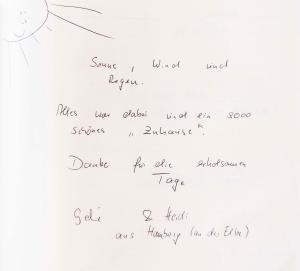 Sonne, Wind und
Regen.
Alles war dabei und ein sooo
schönes „Zuhause“.
Danke für die erholsamen
Tage
& Heidi
aus Hamburg (an der Elbe)